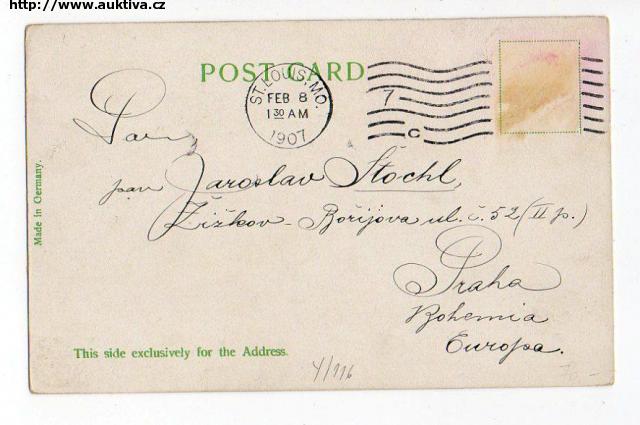 http://www.auktiva.cz
POST CARD
ST. LOUIS, MO.
FEB 8
1 30 AM
1907
7
C
Pan
pan Jaroslav Štochl,
Žižkov - Bořijova ul. č. 52 (II p.)
Praha
Bohemia
Europa.
Made in Germany.
This side exclusively for the Address.
Y/116